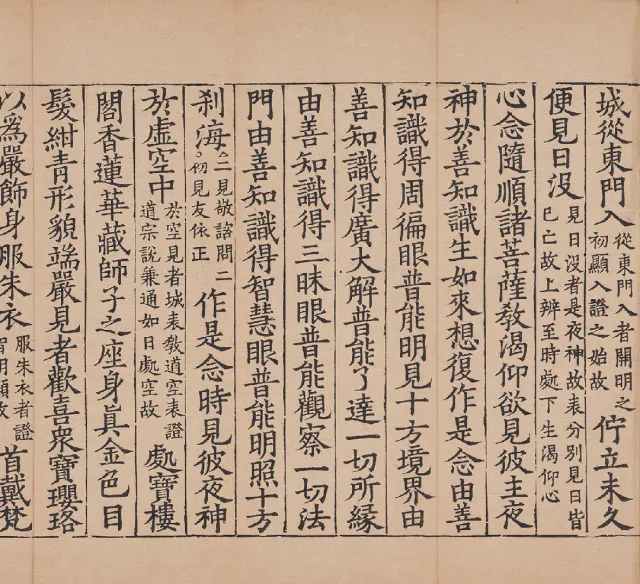 城從東門入從東門入者開明之初顯入證之始故佇立未久
便見日沒見日沒者是夜神故表分別見日皆已亡故上辨至時處下生渴仰心
心念隨順諸菩薩教渴仰欲見彼主夜
神於善知識生如來想復作是念由善
知識得周徧眼普能明見十方境界由
善知識得廣大解普能了達一切所緣
由善知識得三昧眼普能觀察一切法
門由善知識得智慧眼普能明照十方
刹海二見敬諮問二初見友依正作是念時見彼夜神
於虛空中於空見者城表教道空表證道宗說兼通如日處空故處寶樓
閣香蓮華藏師子之座身真金色目
髮紺青形貌端嚴見者歡喜眾寶瓔珞
以為嚴飾身服朱衣服朱衣者證明顯故首戴梵